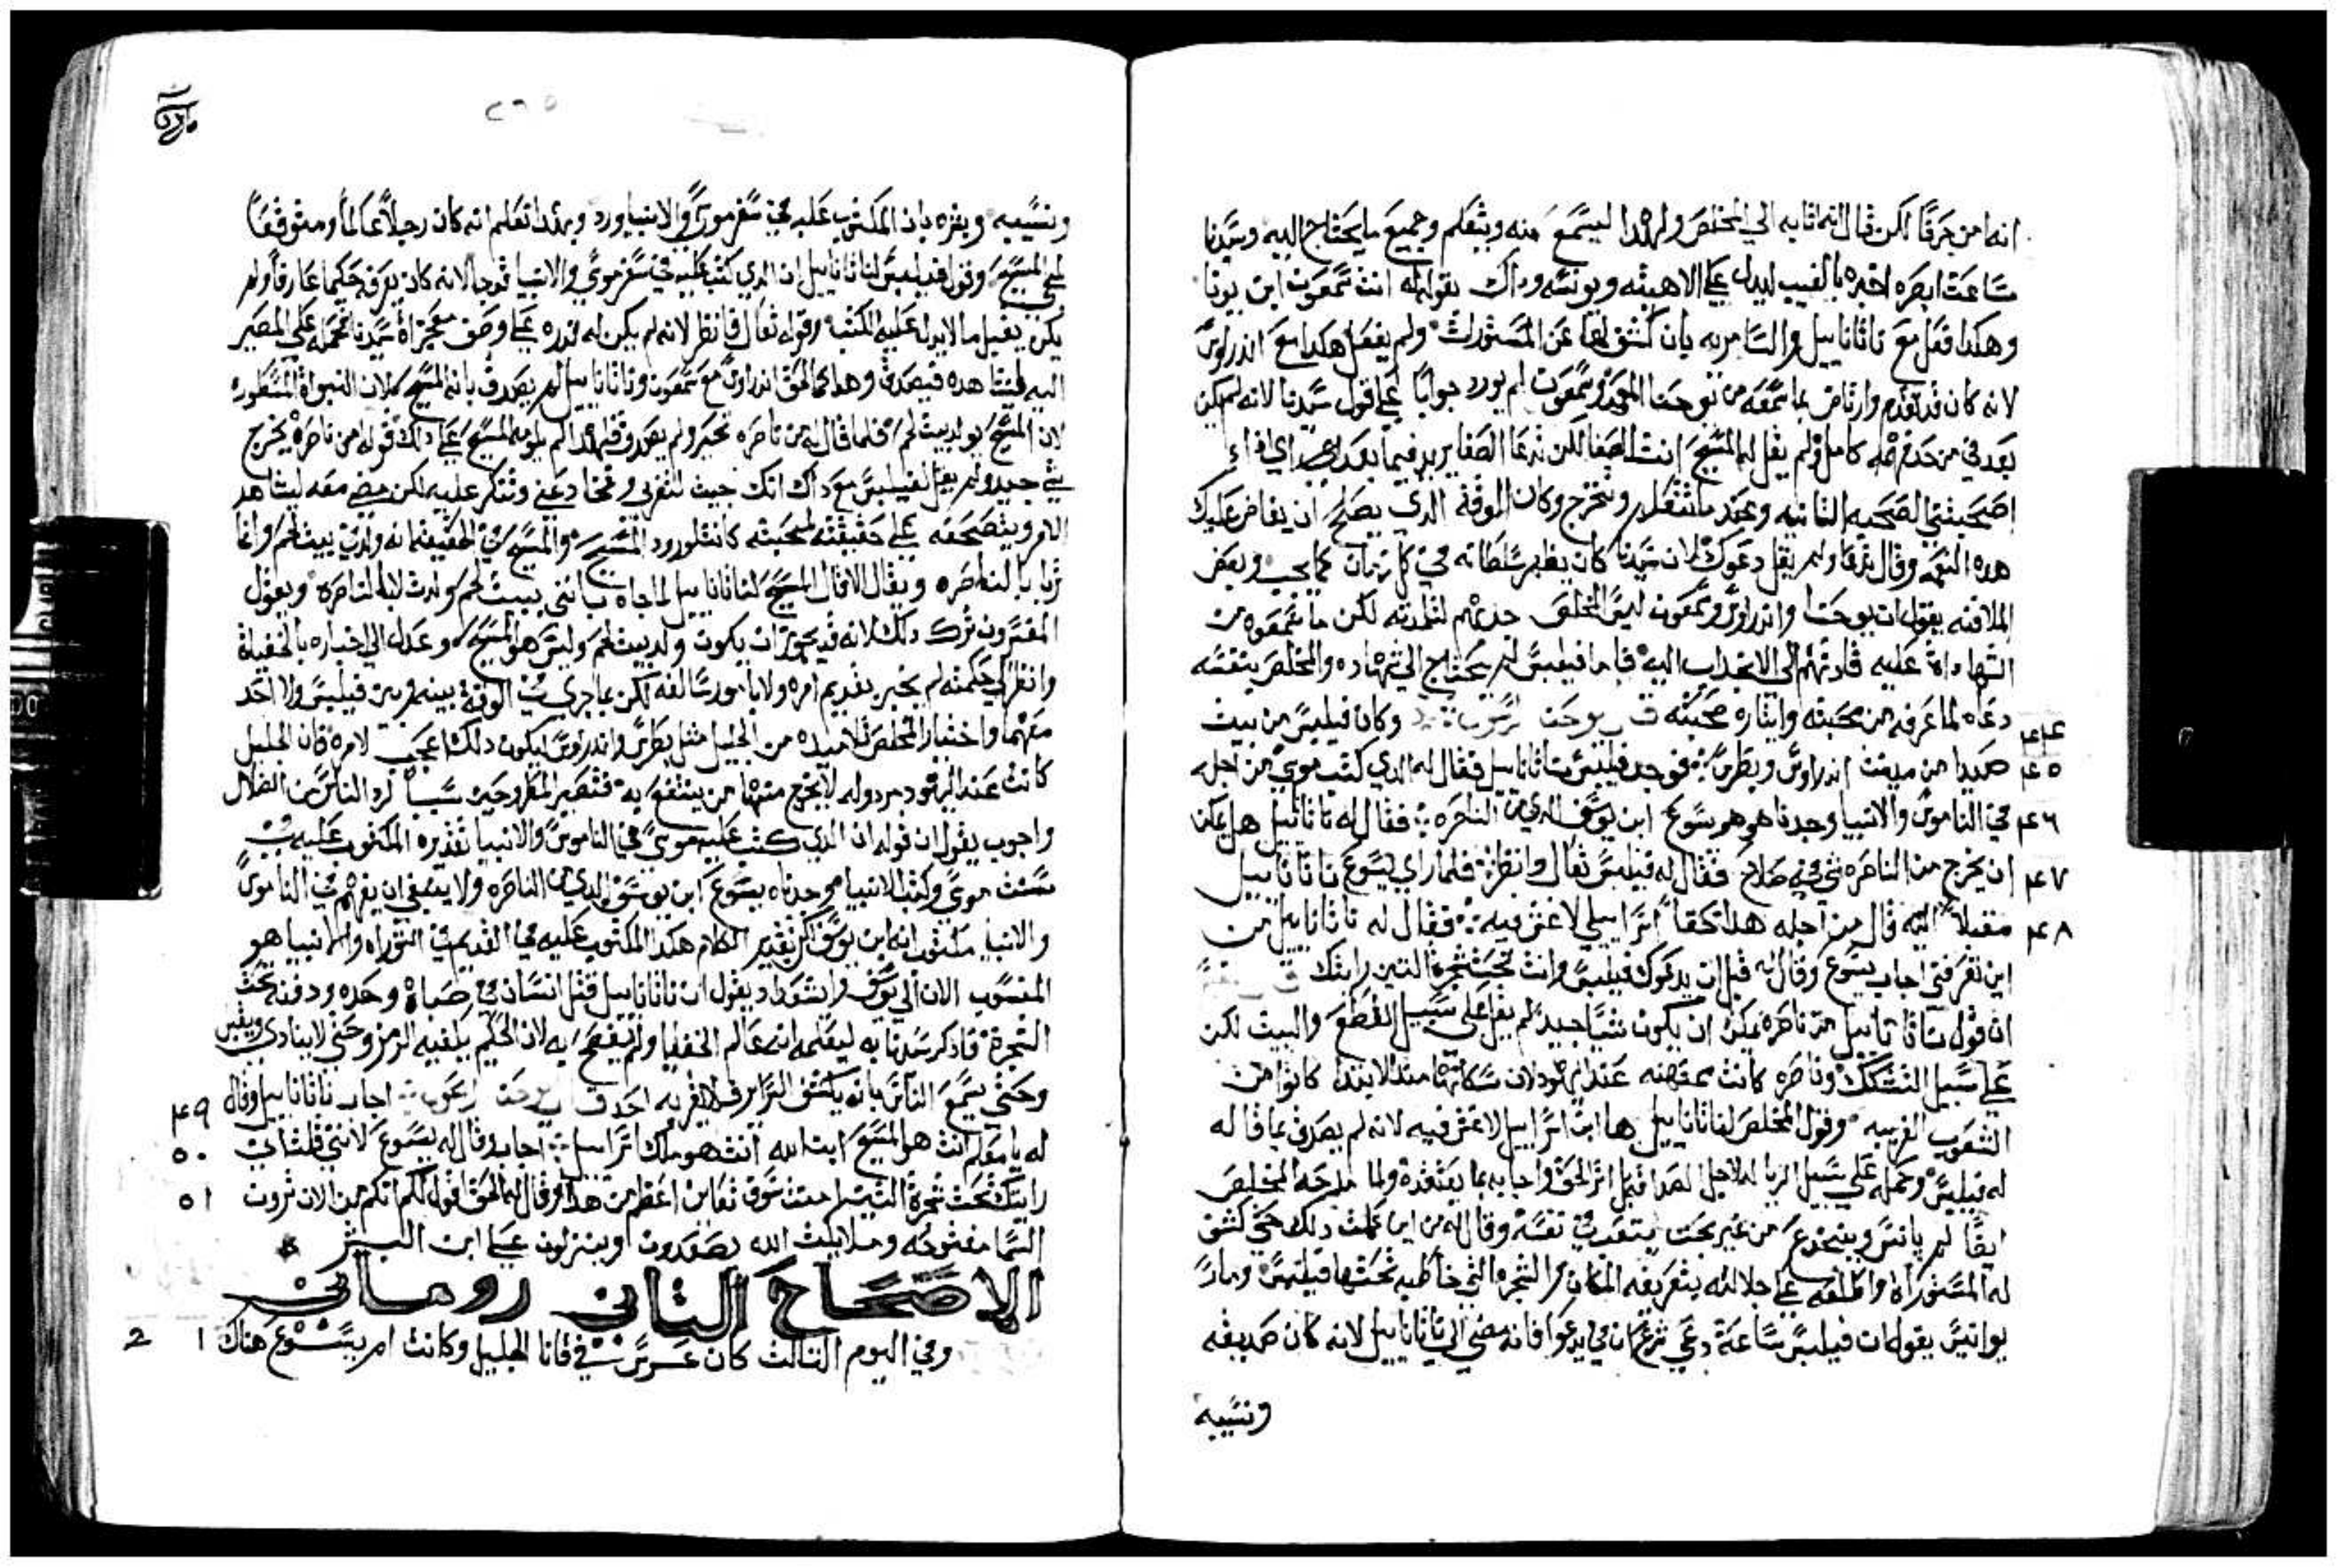 انه من جرقا لكن قال انه اتا به الي المخلص ولهدا ليسمع منه ويتعلم وجميع ما يحتاج اليه وسيدنا
ساعت ابصره اخبره بالغيب ليدل علي الاهيته ويونسه وداك بقوله له انت سمعون ابن يونا
وهكدا فعل مع ناتانابيل والسامريه بان كشف لها عن المستورات ولم يفعل هكدا مع اندراوس
لانه كان قد تقدم وارتاض بما سمعه من يوحنا المعمد وسمعون لم يورد جوابا علي قول سيدنا لانه لم يكن
بعد في من حدق كامل ولم يقل له المسيح انت الصفا لكن تدعا الصفا يريد فيما بعد اي اداء
اصحبتني الصحبه التانيه وعند ما تتعلم وتتخرج وكان الوقت الدي يصلح ان يفاض عليك
هده النعمه وقال تدعا ولم يقل دعوك لان سيدنا كان يظهر سلطانه في كل زمان كما يجب وبعض
الملافنه يقول ان يوحنا واندراوس وسمعون ليس المخلص جدبهم لتلمدته لكن ما سمعوه من
الشهاداة عليه قادتهم الي الانجداب اليه فاما فيلبس لم يحتاج الي شهاده والمخلص بنفسه
دعاه لما عرفه من محبته وايثاره صحبته ف يوحنا وكان فيلبس من بيت
صيدا من مدينت اندراوس وبطرس فوجد فيلبس ناتانابيل فقال له الدي كتب موسي من اجله ٤٤
في الناموس والانبيا وجدناه وهو يسوع ابن يوسف الدي من الناصره فقال له ناتانابيل هل يمكن ٤٥ ٤٦
ان يخرج من الناصره شي فيه صلاح فقال له فيلبس تعال وانظر فلما راي يسوع ناتانابيل ٤٧
مقبلا اليه قال من اجله هدا حقا اسراييلي لا غش فيه فقال له ناتانابيل من ٤٨
اين تعرفني اجاب يسوع وقال له قبل ان يدعوك فيلبس وانت تحت شجرة التين رايتك
ان قول ناتانابيل من ناصره يمكن ان يكون شيا جيد لم يقل علي سبيل القطع والبيت لكن
علي سبيل التشكك وناصره كانت ممتهنه عند اليهود لان سكانها مند الابتدا كانوا من
الشعوب الغريبه وقول المخلص لناتانابيل ها ابن اسراييل لا غش فيه لانه لم يصدق بما قاله
له فيلبس وحمله علي سبيل الريا له لاجل الصداقه بل اثر الحق واجابه بما يعتقده ولما مدحه المخلص
ايضا لم يانس وينخدع من غير بحث يتعدي نفسه وقال له من اين علمت دلك حتي كشف
له المستوراة واطلعه علي جلالته بتعريفه المكان والشجره التي خاطبه تحتها فيلبس ومار
يوانيس يقول ان فيلبس ساعة دعي شرع ان يدعوا فانه مضي الي ناتانابيل لانه كان صديقه
ونسيبه
٢٦٥
ونسيبه ويعزه بان المكتوب عليه في سفر موسي والانبيا ورد وبهدا تعلم انه كان رجلا عالما ومتوقعا
لمجي المسيح وقول فيلبس لناتانابيل ان الدي كتب عليه في سفر موسي والانبيا قد جا لانه كان يعرفه حكيما عارفا ولم
يكن يقبل ما لا يدل عليه الكتب وقوله تعال فانظر لانه لم يكن له قدره علي وصف معجزاة سيدنا فحمله علي المصير
اليه ليشاهده فيصدق وهدا كما لحق اندراوس مع سمعون وناتانابيل لم يصدق بانه المسيح لان النبواة المسطوره
لان المسيح يولد ببيت لحم فلما قال له من ناصره تحير ولم يصدق فلهدا لم يلومه المسيح علي دلك قوله امن ناصرة يخرج
شي جيد ولم يقل لفيلبس مع داك انك جيت لتغرني وتخادعني وتنكر عليه لكن مضي معه ليشاهد
الامر ويتصحفه علي حقيقته لمحبته كانت لورود المسيح والمسيح في الحقيقه انه ولد في بيت لحم وانما
ربا بالناصره ويقال لا قال المسيح لناتانابيل لما جاه بانني ببيت لحم ولدت لا بالناصره ويقول
المفسرون ترك دلك لانه قد يجوز ان يكون ولد ببيت لحم وليس هو المسيح وعدل الي اخباره بالخفياة
وانظر الي حكمته لم يخبر بقديم امره ولا بامور سالفه لكن بما جري في الوقت بينه وبين فيلبس ولا احد
معهما واختيار المخلص تلاميده من الجليل مثل بطرس واندراوس ليكون دلك اعجب لامره فان الجليل
كانت عند اليهود مردوله لا يخرج منها من ينتفع به فتصير المطروحين سببا لرد الناس من الضلال
واجوب يقول ان قوله ان الدي كتب عليه موسي في الناموس والانبيا تقديره المكتوب عليه في
ست موسي وكتب الانبيا وجدناه يسوع ابن يوسف الدي من الناصره ولا ينبغي ان يفهم في الناموس
والانبيا مكتوب انه ابن يوسف لكن تقدير الكلام هكدا المكتوب عليه في القديم في التوراه والانبيا هو
المنسوب الان الي يوسف وايشوعداد يقول ان ناتانابيل قتل انسان في صباه وحده ودفنه تحت
الشجرة فادكر سيدنا به ليعلمه انه عالم الخفايا ولم يفضح به لان الحكيم يكفيه الرمز وحتي لا ينادي ويفنس
وحتي يسمع الناس بانه يكشف السراير فلا يقربه احد ف يوحنا اجاب ناتانابيل وقال ٤٩
له يا معلم انت هو المسيح ابن الله انت هو ملك اسراييل اجاب وقال له يسوع لانني قلت اني ٥٠
رايتك تحت شجرة التين امنت سوف تعاين اعظم من هدا وقال له الحق اقول لكم انكم من الان ترون ٥١
السما مفتوحه وملايكت الله يصعدون وينزلون علي ابن البشر
الاصحاح الثاني روماني
وفي اليوم الثالث كان عرس في قانا الجليل وكانت ام يسوع هناك ١ 2